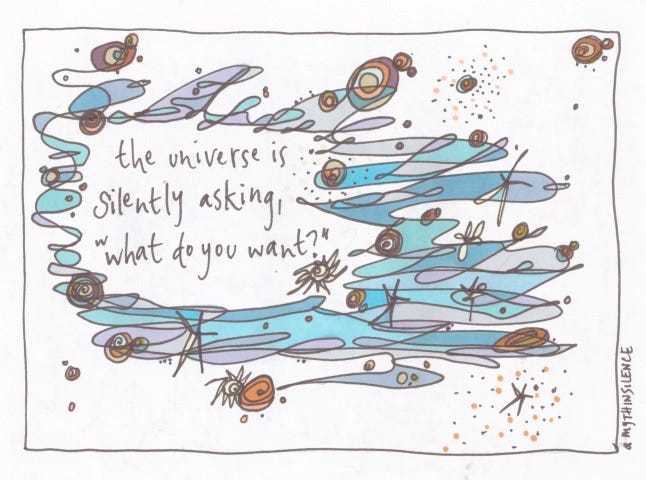 the universe is
silently asking,
"what do you want?"
@ MYTHINSILENCE